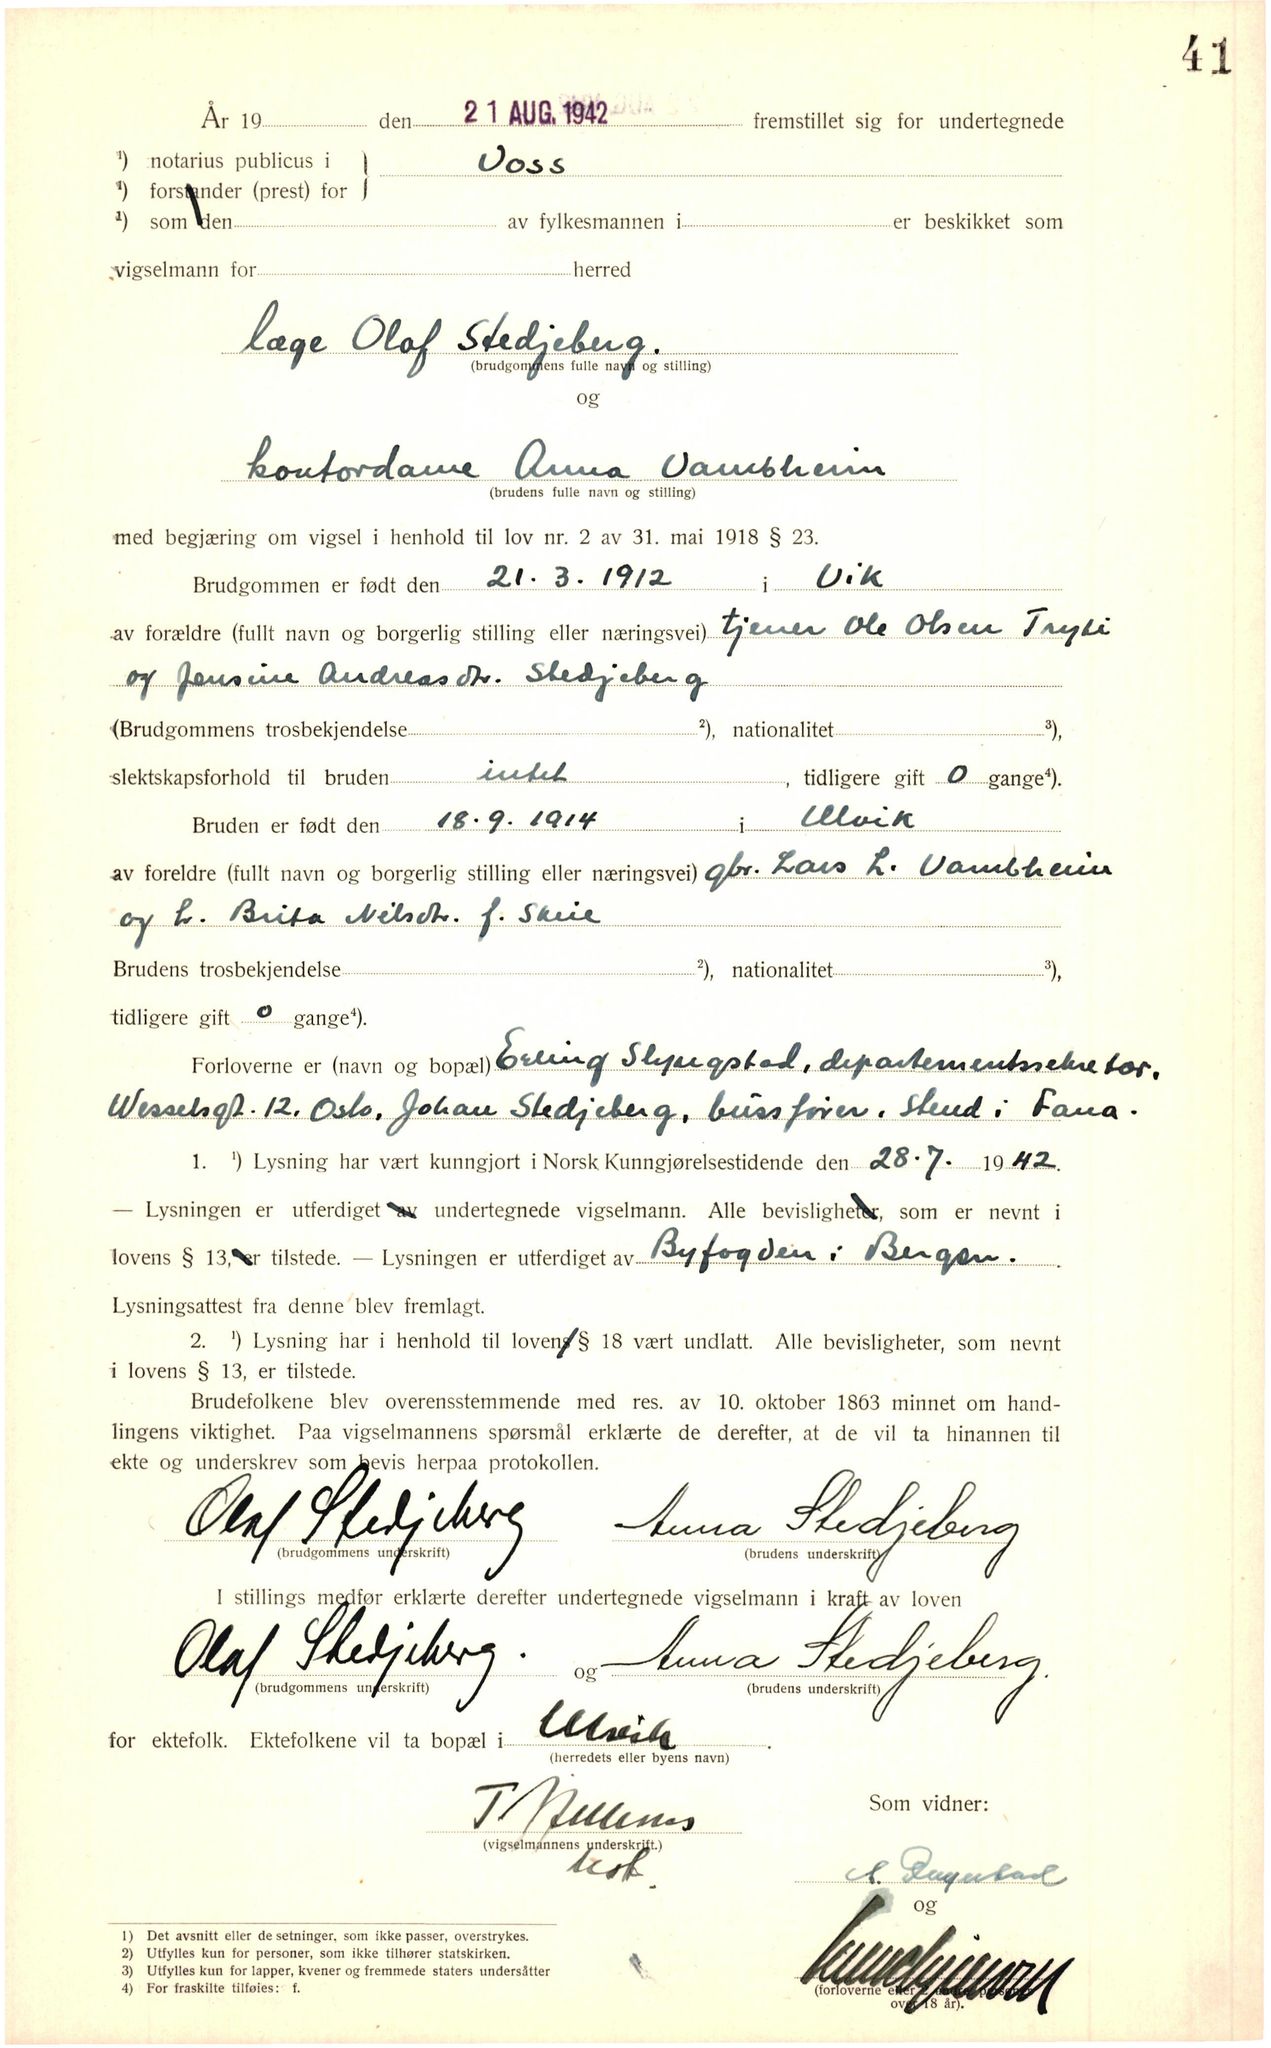 41
År 19 den 21 AUG. 1942 fremstillet sig for undertegnede
¹) notarius publicus i } Voss
¹) forstander (prest) for
¹) som den av fylkesmannen i er beskikket som
vigselmann for herred
læge Olaf Stedjeberg.
(brudgommens fulle navn og stilling)
og
kontordame Anna Vambheim
(brudens fulle navn og stilling)
med begjæring om vigsel i henhold til lov nr. 2 av 31. mai 1918 § 23.
Brudgommen er født den 21. 3. 1912 i Vik
av forældre (fullt navn og borgerlig stilling eller næringsvei) tjener Ole Olsen
og Jensine Andreasdtr. Stedjeberg
(Brudgommens trosbekjendelse ²), nationalitet ³),
slektskapsforhold til bruden intet , tidligere gift 0 gange⁴).
Bruden er født den 18. 9. 1914 i Ulvik
av foreldre (fullt navn og borgerlig stilling eller næringsvei) gbr. Lars L. Vambheim
og h. Brita Nilsdtr. f. Skeie
Brudens trosbekjendelse ²), nationalitet ³),
tidligere gift 0 gange⁴).
Forloverne er (navn og bopæl) Erling departementssekretær,
Wesselsgt. 12, Oslo, Johan Stedjeberg, bussfører, Stend i Fana.
1. ¹) Lysning har vært kunngjort i Norsk Kunngjørelsestidende den 28. 7. 1942.
— Lysningen er utferdiget av undertegnede vigselmann. Alle bevisligheter, som er nevnt i
lovens § 13, er tilstede. — Lysningen er utferdiget av Byfogden i Bergen.
Lysningsattest fra denne blev fremlagt.
2. ¹) Lysning har i henhold til lovens § 18 vært undlatt. Alle bevisligheter, som nevnt
i lovens § 13, er tilstede.
Brudefolkene blev overensstemmende med res. av 10. oktober 1863 minnet om hand-
lingens viktighet. Paa vigselmannens spørsmål erklærte de derefter, at de vil ta hinannen til
ekte og underskrev som bevis herpaa protokollen.
Olaf Stedjeberg Anna Stedjeberg
(brudgommens underskrift) (brudens underskrift)
I stillings medfør erklærte derefter undertegnede vigselmann i kraft av loven
Olaf Stedjeberg. og Anna Stedjeberg.
(brudgommens underskrift) (brudens underskrift)
for ektefolk. Ektefolkene vil ta bopæl i Ulvik .
(herredets eller byens navn)
T
Som vidner:
(vigselmannens underskrift.)
og
(forloverne eller 2 andre personer
over 18 år).
1) Det avsnitt eller de setninger, som ikke passer, overstrykes.
2) Utfylles kun for personer, som ikke tilhører statskirken.
3) Utfylles kun for lapper, kvener og fremmede staters undersåtter
4) For fraskilte tilføies: f.